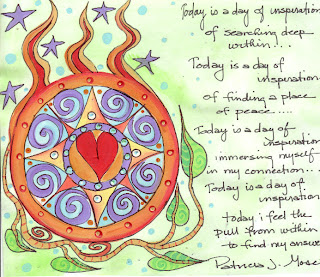 Today is a day of inspiration
of searching deep
within....
Today is a day of
inspiration
of finding a place
of peace....
Today is a day of
inspiration
immersing myself
in my connection...
Today is a day of
inspiration
today i feel the
pull from within
to find my answe
Patricia J. Mosc